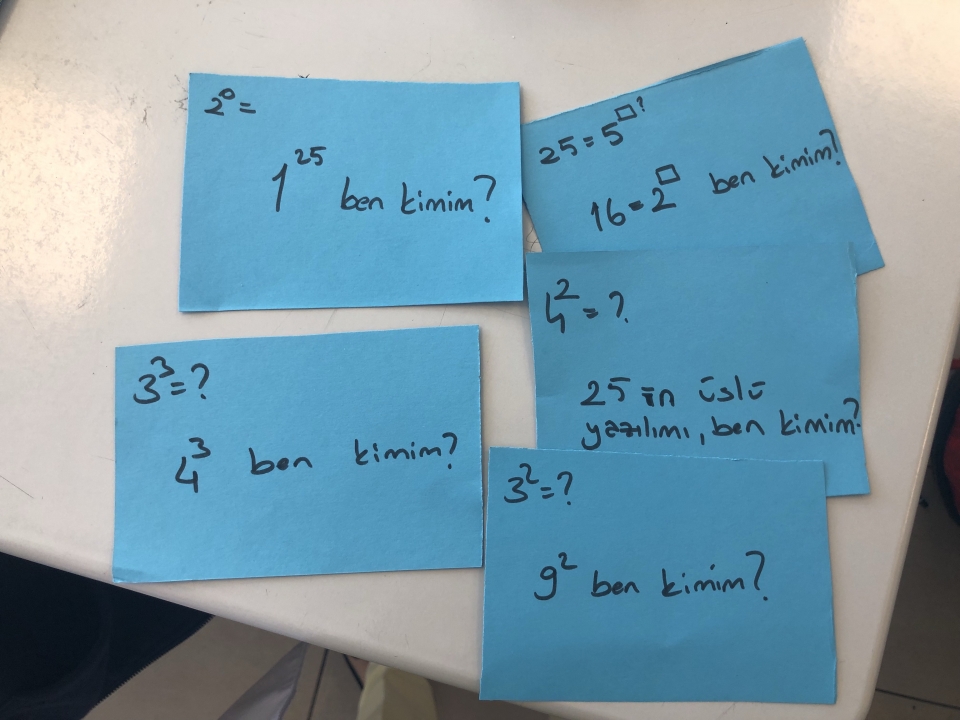 2⁰=
1²⁵ ben kimim?
25=5^□?
16=2^□ ben kimim?
4²=?
25 in üslü
yazılımı, ben kimim?
3³=?
4³ ben kimim?
3²=?
9² ben kimim?